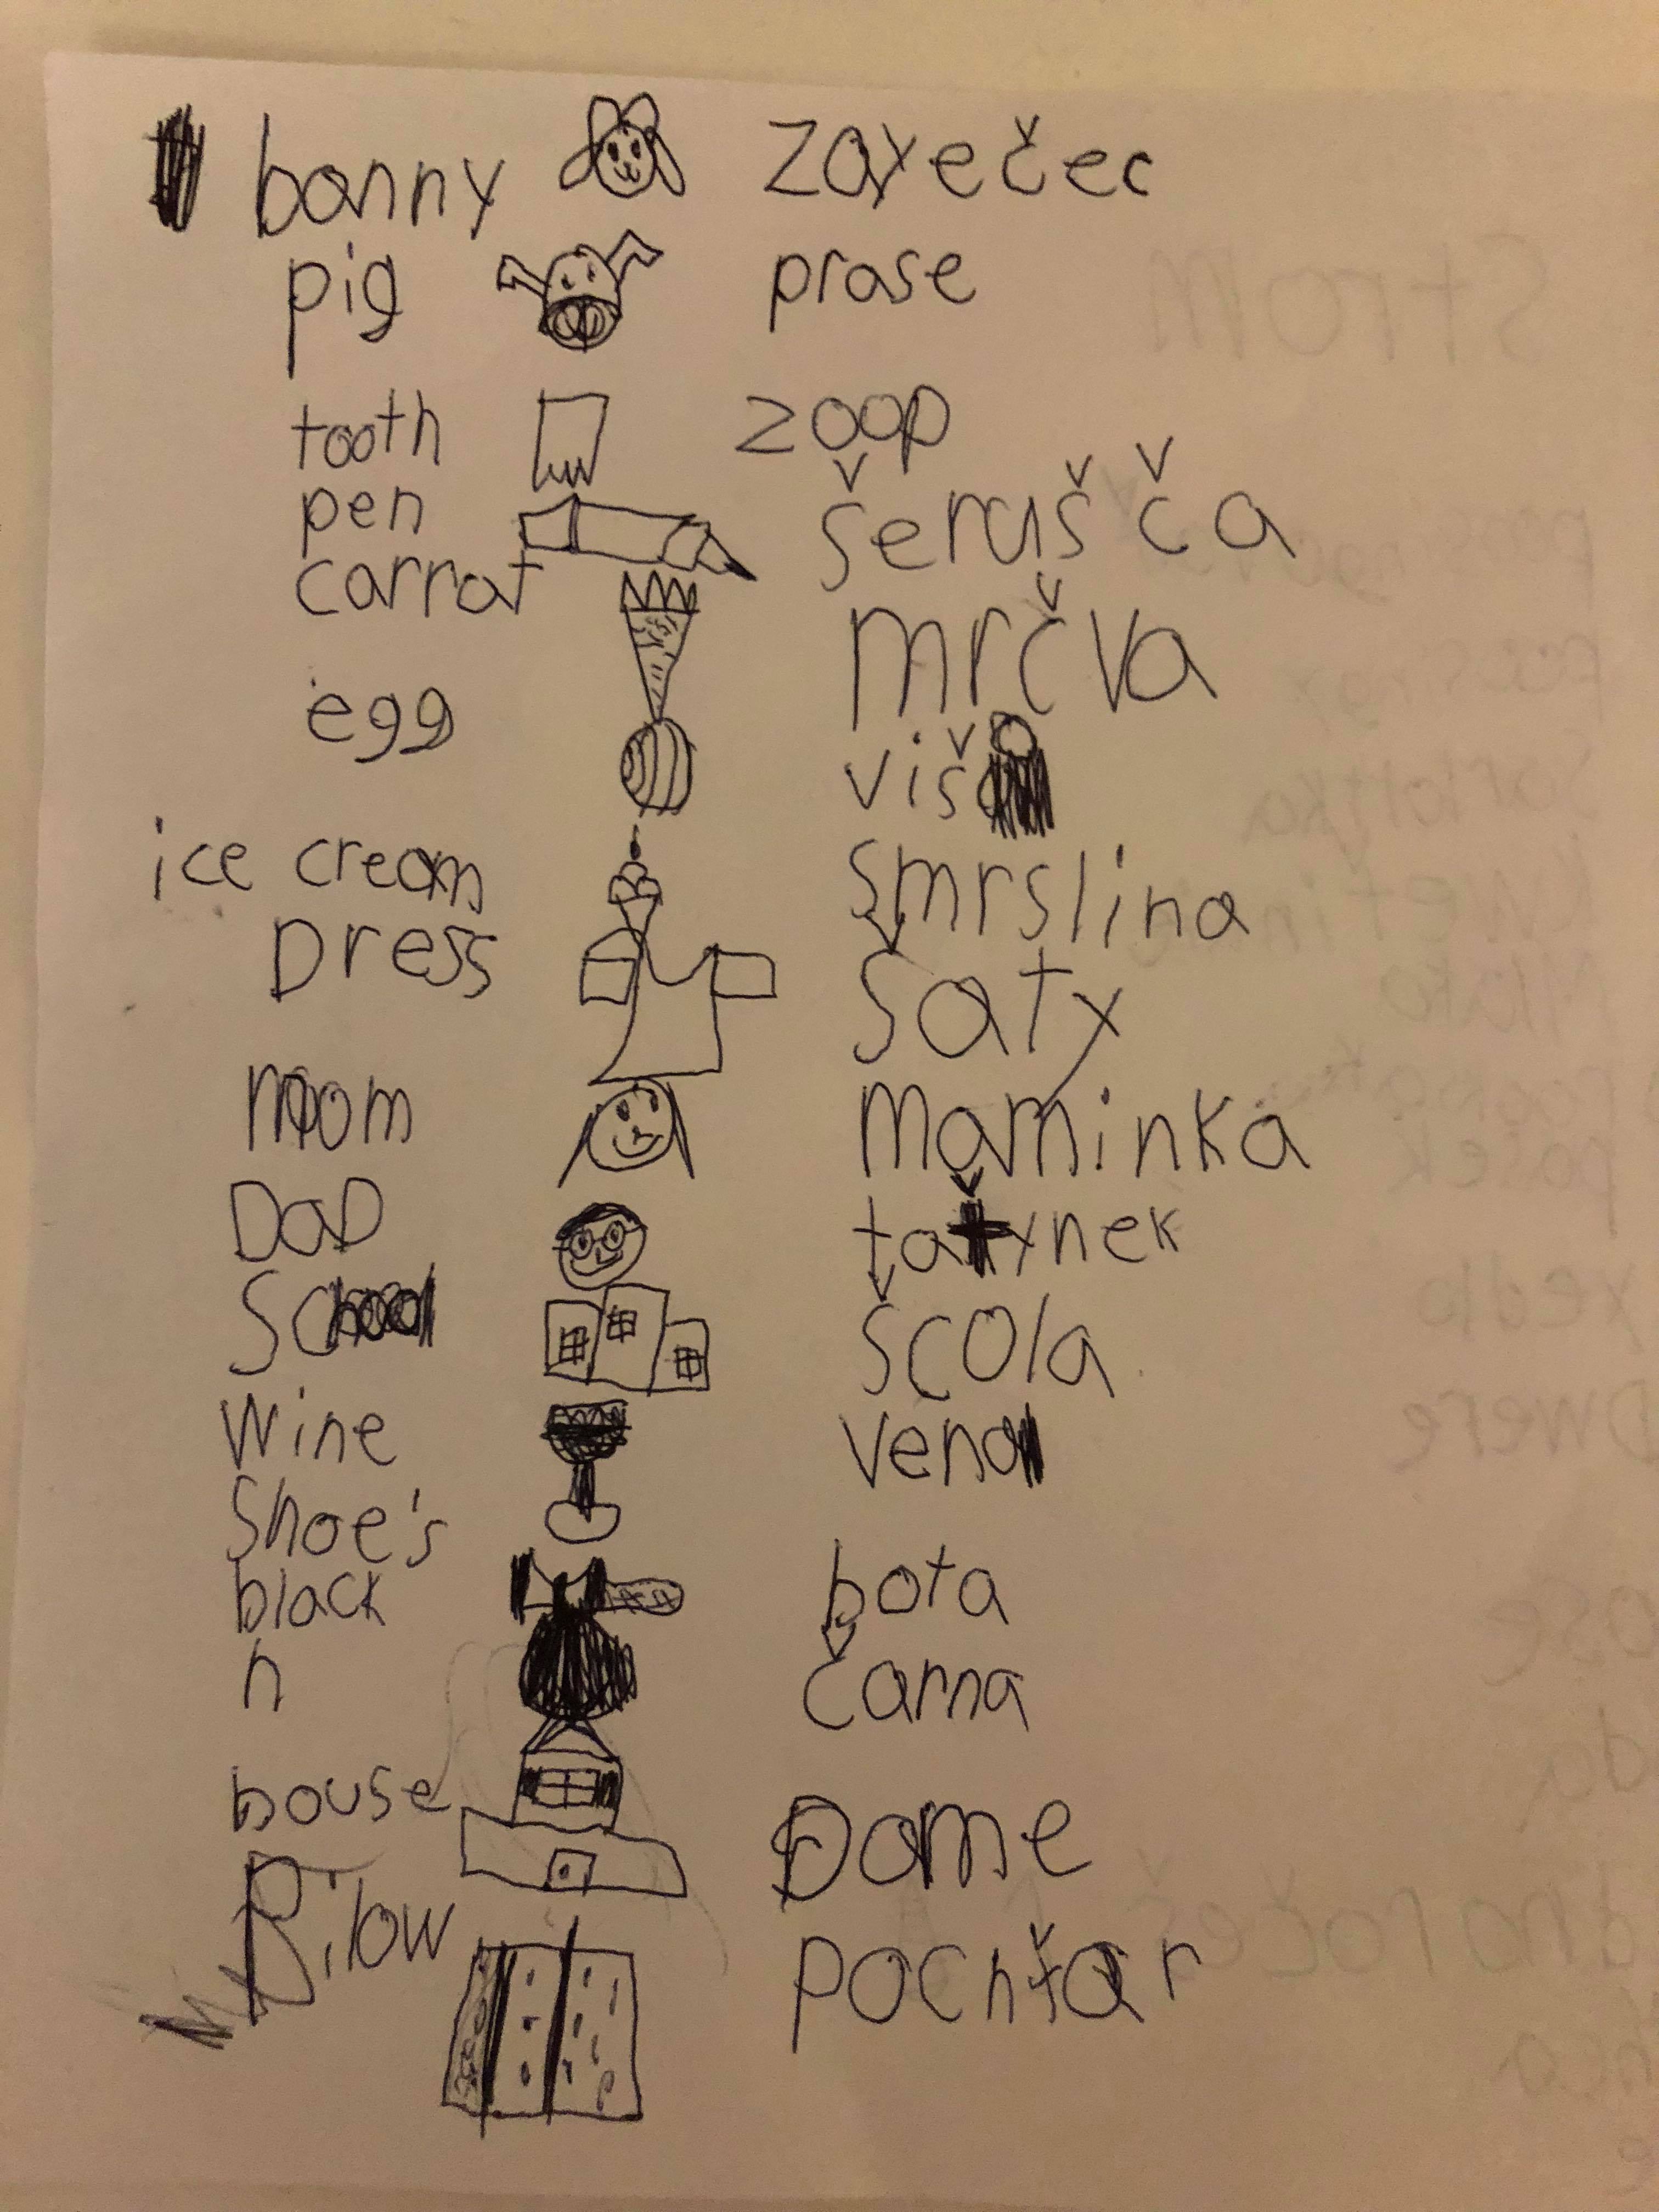 bonny zayečec
pig prase
tooth zoop
pen šerušča
carrot mrčva
egg viš
ice cream smrslina
Dress šaty
mom maminka
DaD tatynek
School šcola
wine vena
Shoe's
black bota
n čarna
house Dome
Pilow pochťar